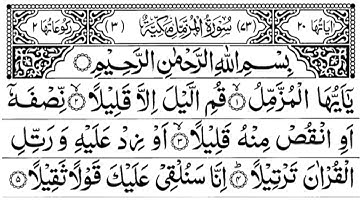 اٰیَاتُهَا ۲۰ (۷۳) سُوْرَةُ الْمُزَّمِّلِ مَكِّيَّةٌ (۳) رُكُوْعَاتُهَا ۲
بِسْمِ اللّٰهِ الرَّحْمٰنِ الرَّحِيْمِ
يٰٓاَيُّهَا الْمُزَّمِّلُ ۱ قُمِ الَّيْلَ اِلَّا قَلِيْلًا ۲ نِّصْفَهٗٓ
اَوِ انْقُصْ مِنْهُ قَلِيْلًا ۳ اَوْ زِدْ عَلَيْهِ وَ رَتِّلِ
الْقُرْاٰنَ تَرْتِيْلًا ۴ اِنَّا سَنُلْقِيْ عَلَيْكَ قَوْلًا ثَقِيْلًا ۵